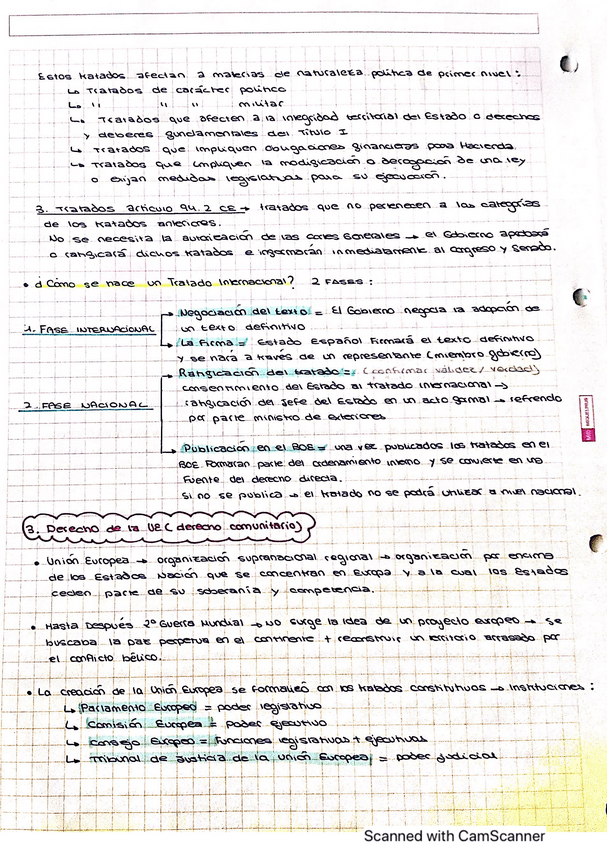 Estos tratados afectan a materias de naturaleza política de primer nivel:
↳ Tratados de carácter político
↳ " " " militar
↳ Tratados que afecten a la integridad territorial del Estado o derechos
y deberes fundamentales del Título I
↳ Tratados que impliquen obligaciones financieras para Hacienda.
↳ Tratados que impliquen la modificación o derogación de una ley
o exijan medidas legislativas para su ejecución.
3. Tratados artículo 94.2 CE → tratados que no pertenecen a las categorías
de los tratados anteriores.
No se necesita la autorización de las Cortes Generales → el Gobierno aprobará
o ratificará dichos tratados e informarán inmediatamente al congreso y senado.
• ¿Cómo se hace un Tratado Internacional? 2 FASES:
1. FASE INTERNACIONAL
→ Negociación del texto = El Gobierno negocia la adopción de
un texto definitivo
→ La Firma = Estado Español firmará el texto definitivo
y se hará a través de un representante (miembro gobierno)
2. FASE NACIONAL
→ Ratificación del tratado = (confirmar validez / verdad)
consentimiento del Estado al tratado internacional →
ratificación del Jefe del Estado en un acto formal → refrendo
por parte ministro de exteriores
→ Publicación en el BOE = una vez publicados los tratados en el
BOE formarán parte del ordenamiento interno y se convierte en una
Fuente del derecho directa.
Si no se publica → el tratado no se podrá utilizar a nivel nacional.
3. Derecho de la UE (derecho comunitario)
• Unión Europea → organización supranacional regional → organización por encima
de los Estados Nación que se concentran en Europa y a la cual los Estados
ceden parte de su soberanía y competencia.
• Hasta Después 2ª Guerra Mundial → no surge la idea de un proyecto europeo → se
buscaba la paz perpetua en el continente + reconstruir un territorio arrasado por
el conflicto bélico.
• La creación de la Unión Europea se formalizó con los tratados constitutivos → Instituciones:
↳ Parlamento Europeo = poder legislativo
↳ Comisión Europea = poder ejecutivo
↳ Consejo Europeo = Funciones legislativas + ejecutivas
↳ Tribunal de Justicia de la Unión Europea = poder judicial
Scanned with CamScanner